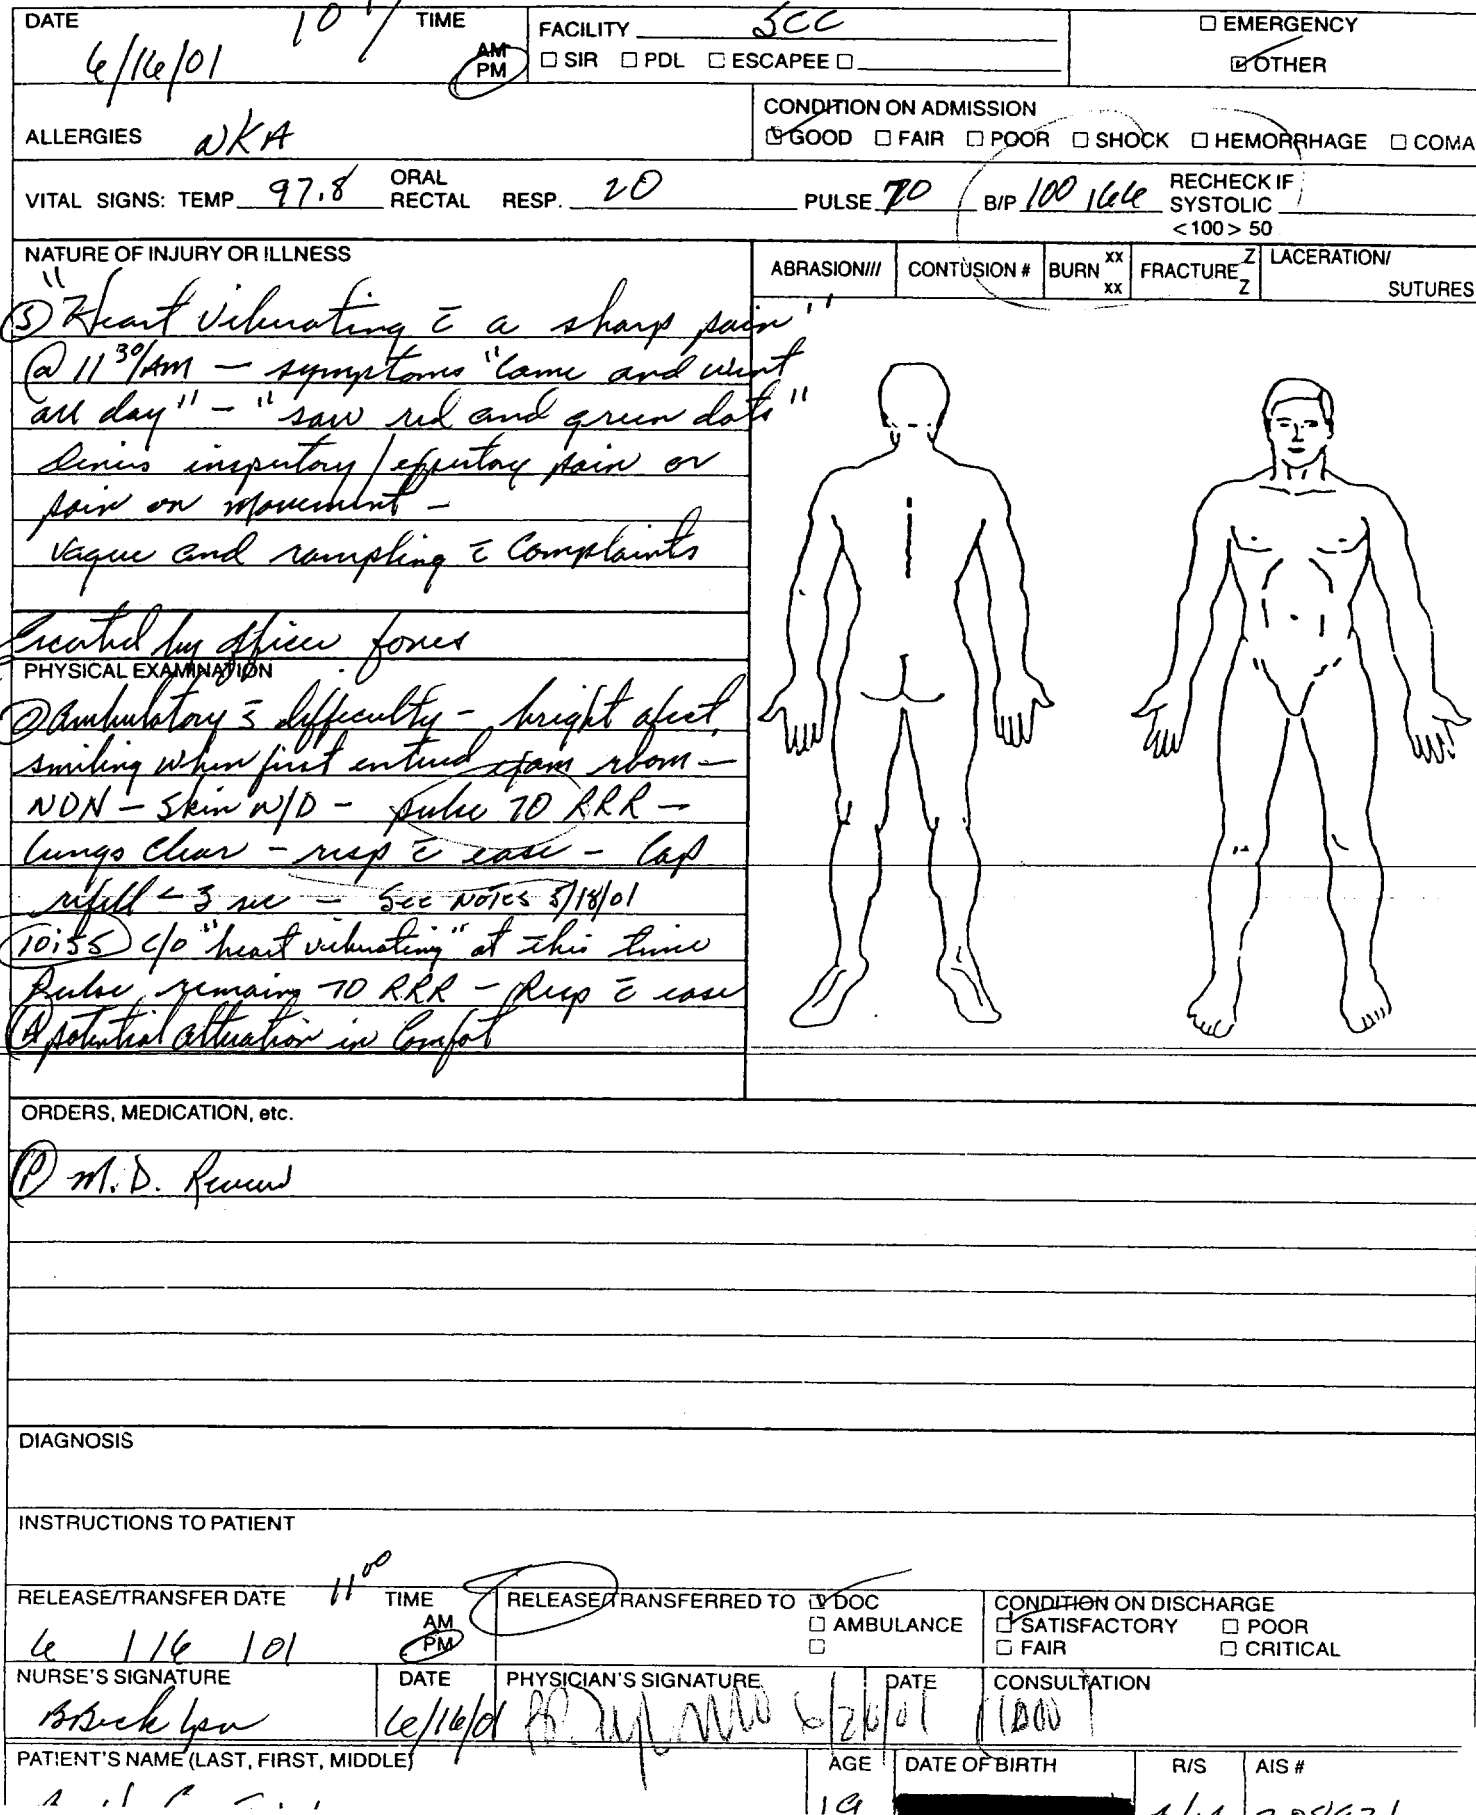 DATE TIME
6/16/01 AM PM
FACILITY SCC
☐ SIR ☐ PDL ☐ ESCAPEE ☐
☐ EMERGENCY
☑ OTHER
ALLERGIES NKA
CONDITION ON ADMISSION
☑ GOOD ☐ FAIR ☐ POOR ☐ SHOCK ☐ HEMORRHAGE ☐ COMA
VITAL SIGNS: TEMP 97.8 ORAL RECTAL RESP. 20 PULSE 70 B/P 100/66 RECHECK IF SYSTOLIC <100> 50
NATURE OF INJURY OR ILLNESS
ABRASION/// CONTUSION # BURN xx xx FRACTURE Z Z LACERATION/ SUTURES
(S) "Heart vibrating c̄ a sharp pain"
@ 11 30/AM – symptoms "came and went
all day" – "saw red and green dots"
denies inspiratory / expiratory pain or
pain on movement –
vague and rambling c̄ complaints
by officer Jones
PHYSICAL EXAMINATION
(O) ambulatory s̄ difficulty – bright afect,
smiling when first entered exam room –
– Skin W/D – pulse 70 RRR –
lungs clear – resp c̄ ease – Cap
refill < 3 sec – See Notes 5/18/01
10:55 c/o "heart vibrating" at this time
Pulse remains 70 RRR – Resp c̄ ease
(A) potential alteration in Comfort
ORDERS, MEDICATION, etc.
(P) M.D. Review
DIAGNOSIS
INSTRUCTIONS TO PATIENT
RELEASE/TRANSFER DATE 11 00 TIME
6 / 16 / 01 AM PM
RELEASE/TRANSFERRED TO ☑ DOC
☐ AMBULANCE
☐
CONDITION ON DISCHARGE
☑ SATISFACTORY ☐ POOR
☐ FAIR ☐ CRITICAL
NURSE'S SIGNATURE DATE PHYSICIAN'S SIGNATURE DATE CONSULTATION
6/16/01 6/26/01
PATIENT'S NAME (LAST, FIRST, MIDDLE) AGE DATE OF BIRTH R/S AIS #
19